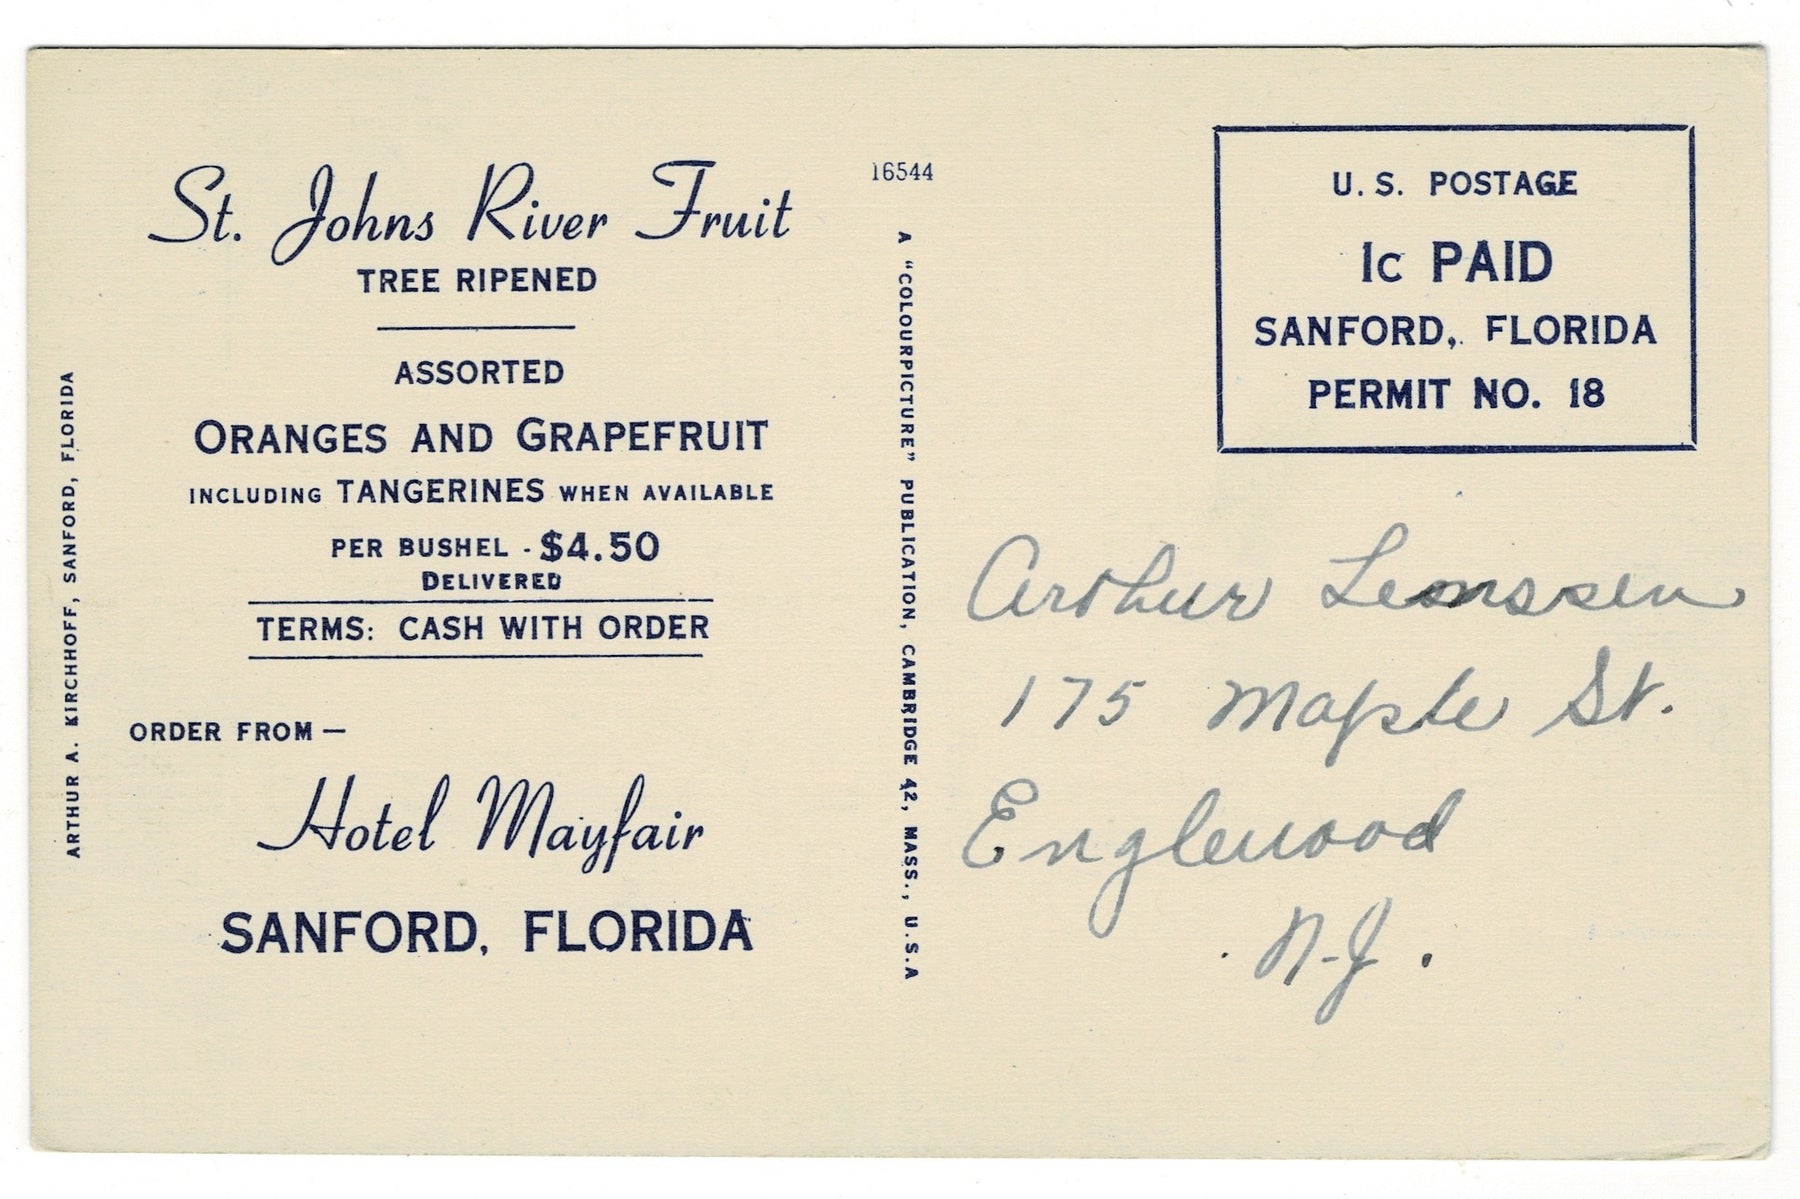 St. Johns River Fruit
TREE RIPENED
ASSORTED
ORANGES AND GRAPEFRUIT
INCLUDING TANGERINES WHEN AVAILABLE
PER BUSHEL - $4.50
DELIVERED
TERMS: CASH WITH ORDER
ORDER FROM —
Hotel Mayfair
SANFORD, FLORIDA
ARTHUR A. KIRCHHOFF, SANFORD, FLORIDA
16544
A "COLOURPICTURE" PUBLICATION, CAMBRIDGE 42, MASS., U.S.A
U. S. POSTAGE
1c PAID
SANFORD, FLORIDA
PERMIT NO. 18
Arthur
175 Maple St.
Englewood
N-J.